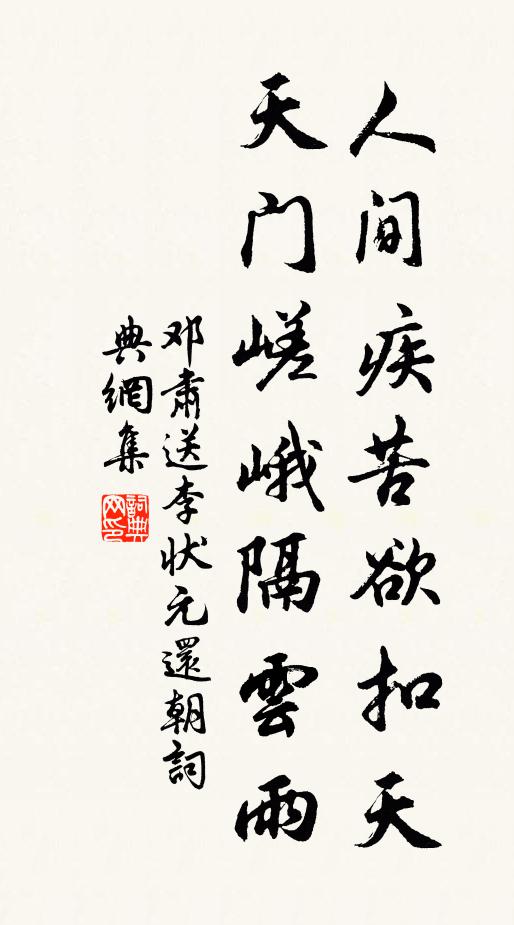 人间疾苦欲扣天
天门嵯峨隔雲雨
邓肅送李状元還朝詞
典網集
詞典网印